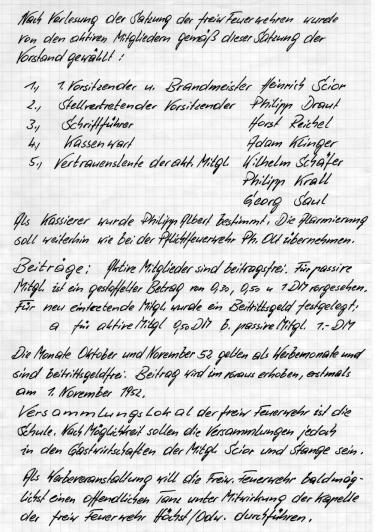 Nach Verlesung der Satzung der freiw Feuerwehren wurde
von den aktiven Mitgliedern gemäß dieser Satzung der
Vorstand gewählt :
1., 1. Vorsitzender u. Brandmeister Heinrich Scior
2., Stellvertretender Vorsitzender Philipp Draut
3., Schriftführer Horst Reichel
4., Kassenwart Adam Klinger
5., Vertrauensleute der akt. Mitgl. Wilhelm Schäfer
Philipp Krall
Georg Saul
Als Kassierer wurde Philipp Albert bestimmt. Die Alarmierung
soll weiterhin wie bei der Pflichtfeuerwehr Ph. Ott übernehmen.
Beiträge: Aktive Mitglieder sind beitragsfrei. Für passive
Mitgl. ist ein gestaffelter Betrag von 0,30, 0,50 u 1 DM vorgesehen.
Für neu eintretende Mitgl. wurde ein Beitrittsgeld festgelegt:
a für aktive Mitgl 0,50 DM b. passive Mitgl. 1.- DM
Die Monate Oktober und November 52 gelten als Werbemonate und
sind beitrittsgeldfrei. Beitrag wird im voraus erhoben, erstmals
am 1. November 1952.
Versammlungslokal der freiw Feuerwehr ist die
Schule. Nach Möglichkeit sollen die Versammlungen jedoch
in den Gastwirtschaften der Mitgl. Scior und Stange sein.
Als Werbeveranstaltung will die Freiw. Feuerwehr baldmög-
lichst einen öffendlichen Tanz unter Mitwirkung der Kapelle
der freiw Feuerwehr Höchst/Odw. durchführen.